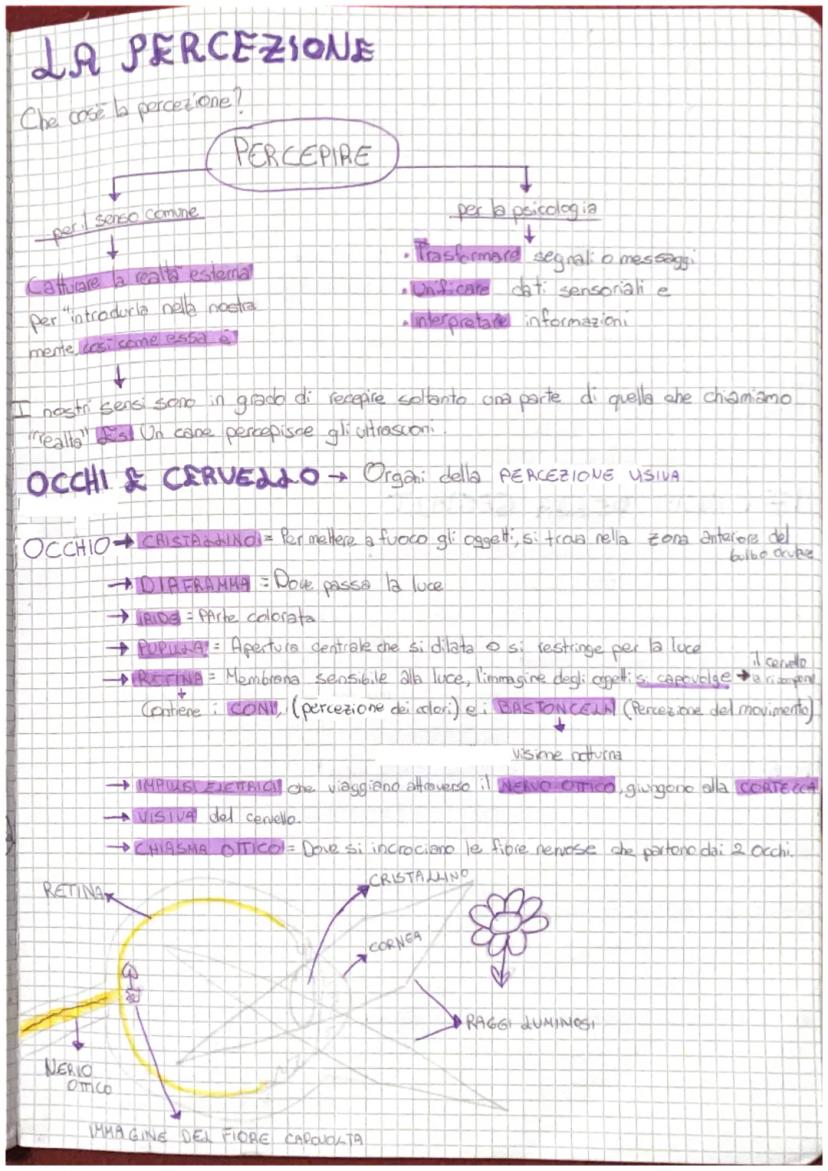 LA PERCEZIONE
Che cos'è la percezione?
PERCEPIRE
per il senso comune
per la psicologia
Catturare la realtà esterna
per "introdurla nella nostra
mente, così come essa è"
• Trasformare segnali o messaggi
• Unificare dati sensoriali e
• interpretare informazioni
I nostri sensi sono in grado di recepire soltanto una parte di quella che chiamiamo
"realtà" Es. Un cane percepisce gli ultrasuoni.
OCCHI & CERVELLO → Organi della PERCEZIONE VISIVA
OCCHIO → CRISTALLINO = Per mettere a fuoco gli oggetti, si trova nella zona anteriore del
bulbo oculare
→ DIAFRAMMA = Dove passa la luce
→ IRIDE = PArte colorata
→ PUPILLA = Apertura centrale che si dilata o si restringe per la luce
→ RETINA = Membrana sensibile alla luce, l'immagine degli oggetti si capovolge → il cervello
Contiene i CONI, (percezione dei colori) e i BASTONCELLI (Percezione del movimento)
visione notturna
→ IMPULSI ELETTRICI che viaggiano attraverso il NERVO OTTICO, giungono alla CORTECCA
→ VISIVA del cervello.
→ CHIASMA OTTICO = Dove si incrociano le fibre nervose che partono dai 2 occhi.
RETINA
CRISTALLINO
CORNEA
RAGGI LUMINOSI
NERVO
OTTICO
IMMAGINE DEL FIORE CAPOVOLTA